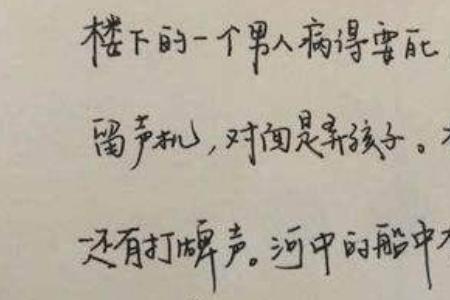 楼下的一个男人病得要死
留声机，对面是弄孩子。
还有打牌声。河中的船中